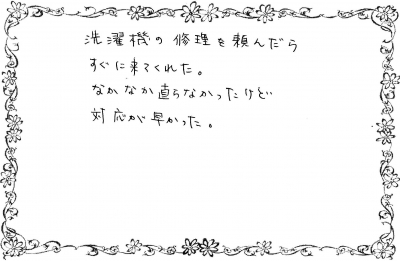 洗濯機の修理を頼んだら
すぐに来てくれた。
なかなか直らなかったけど
対応が早かった。